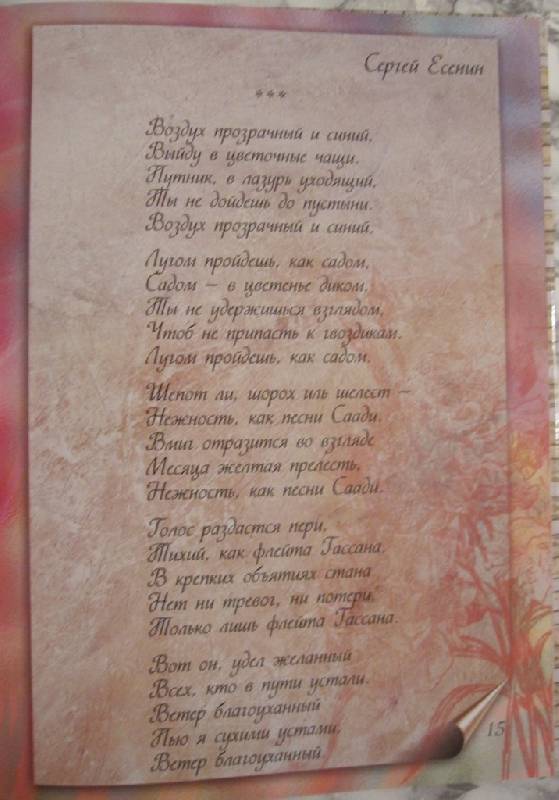 Сергей Есенин
***
Воздух прозрачный и синий,
Выйду в цветочные чащи.
Путник, в лазурь уходящий,
Ты не дойдешь до пустыни.
Воздух прозрачный и синий.
Лугом пройдешь, как садом,
Садом – в цветенье диком,
Ты не удержишься взглядом,
Чтоб не припасть к гвоздикам.
Лугом пройдешь, как садом.
Шепот ли, шорох иль шелест –
Нежность, как песни Саади.
Вмиг отразится во взгляде
Месяца желтая прелесть,
Нежность, как песни Саади.
Голос раздастся пери,
Тихий, как флейта Гассана.
В крепких объятиях стана
Нет ни тревог, ни потери,
Только лишь флейта Гассана.
Вот он, удел желанный
Всех, кто в пути устали.
Ветер благоуханный
Пью я сухими устами,
Ветер благоуханный.
15